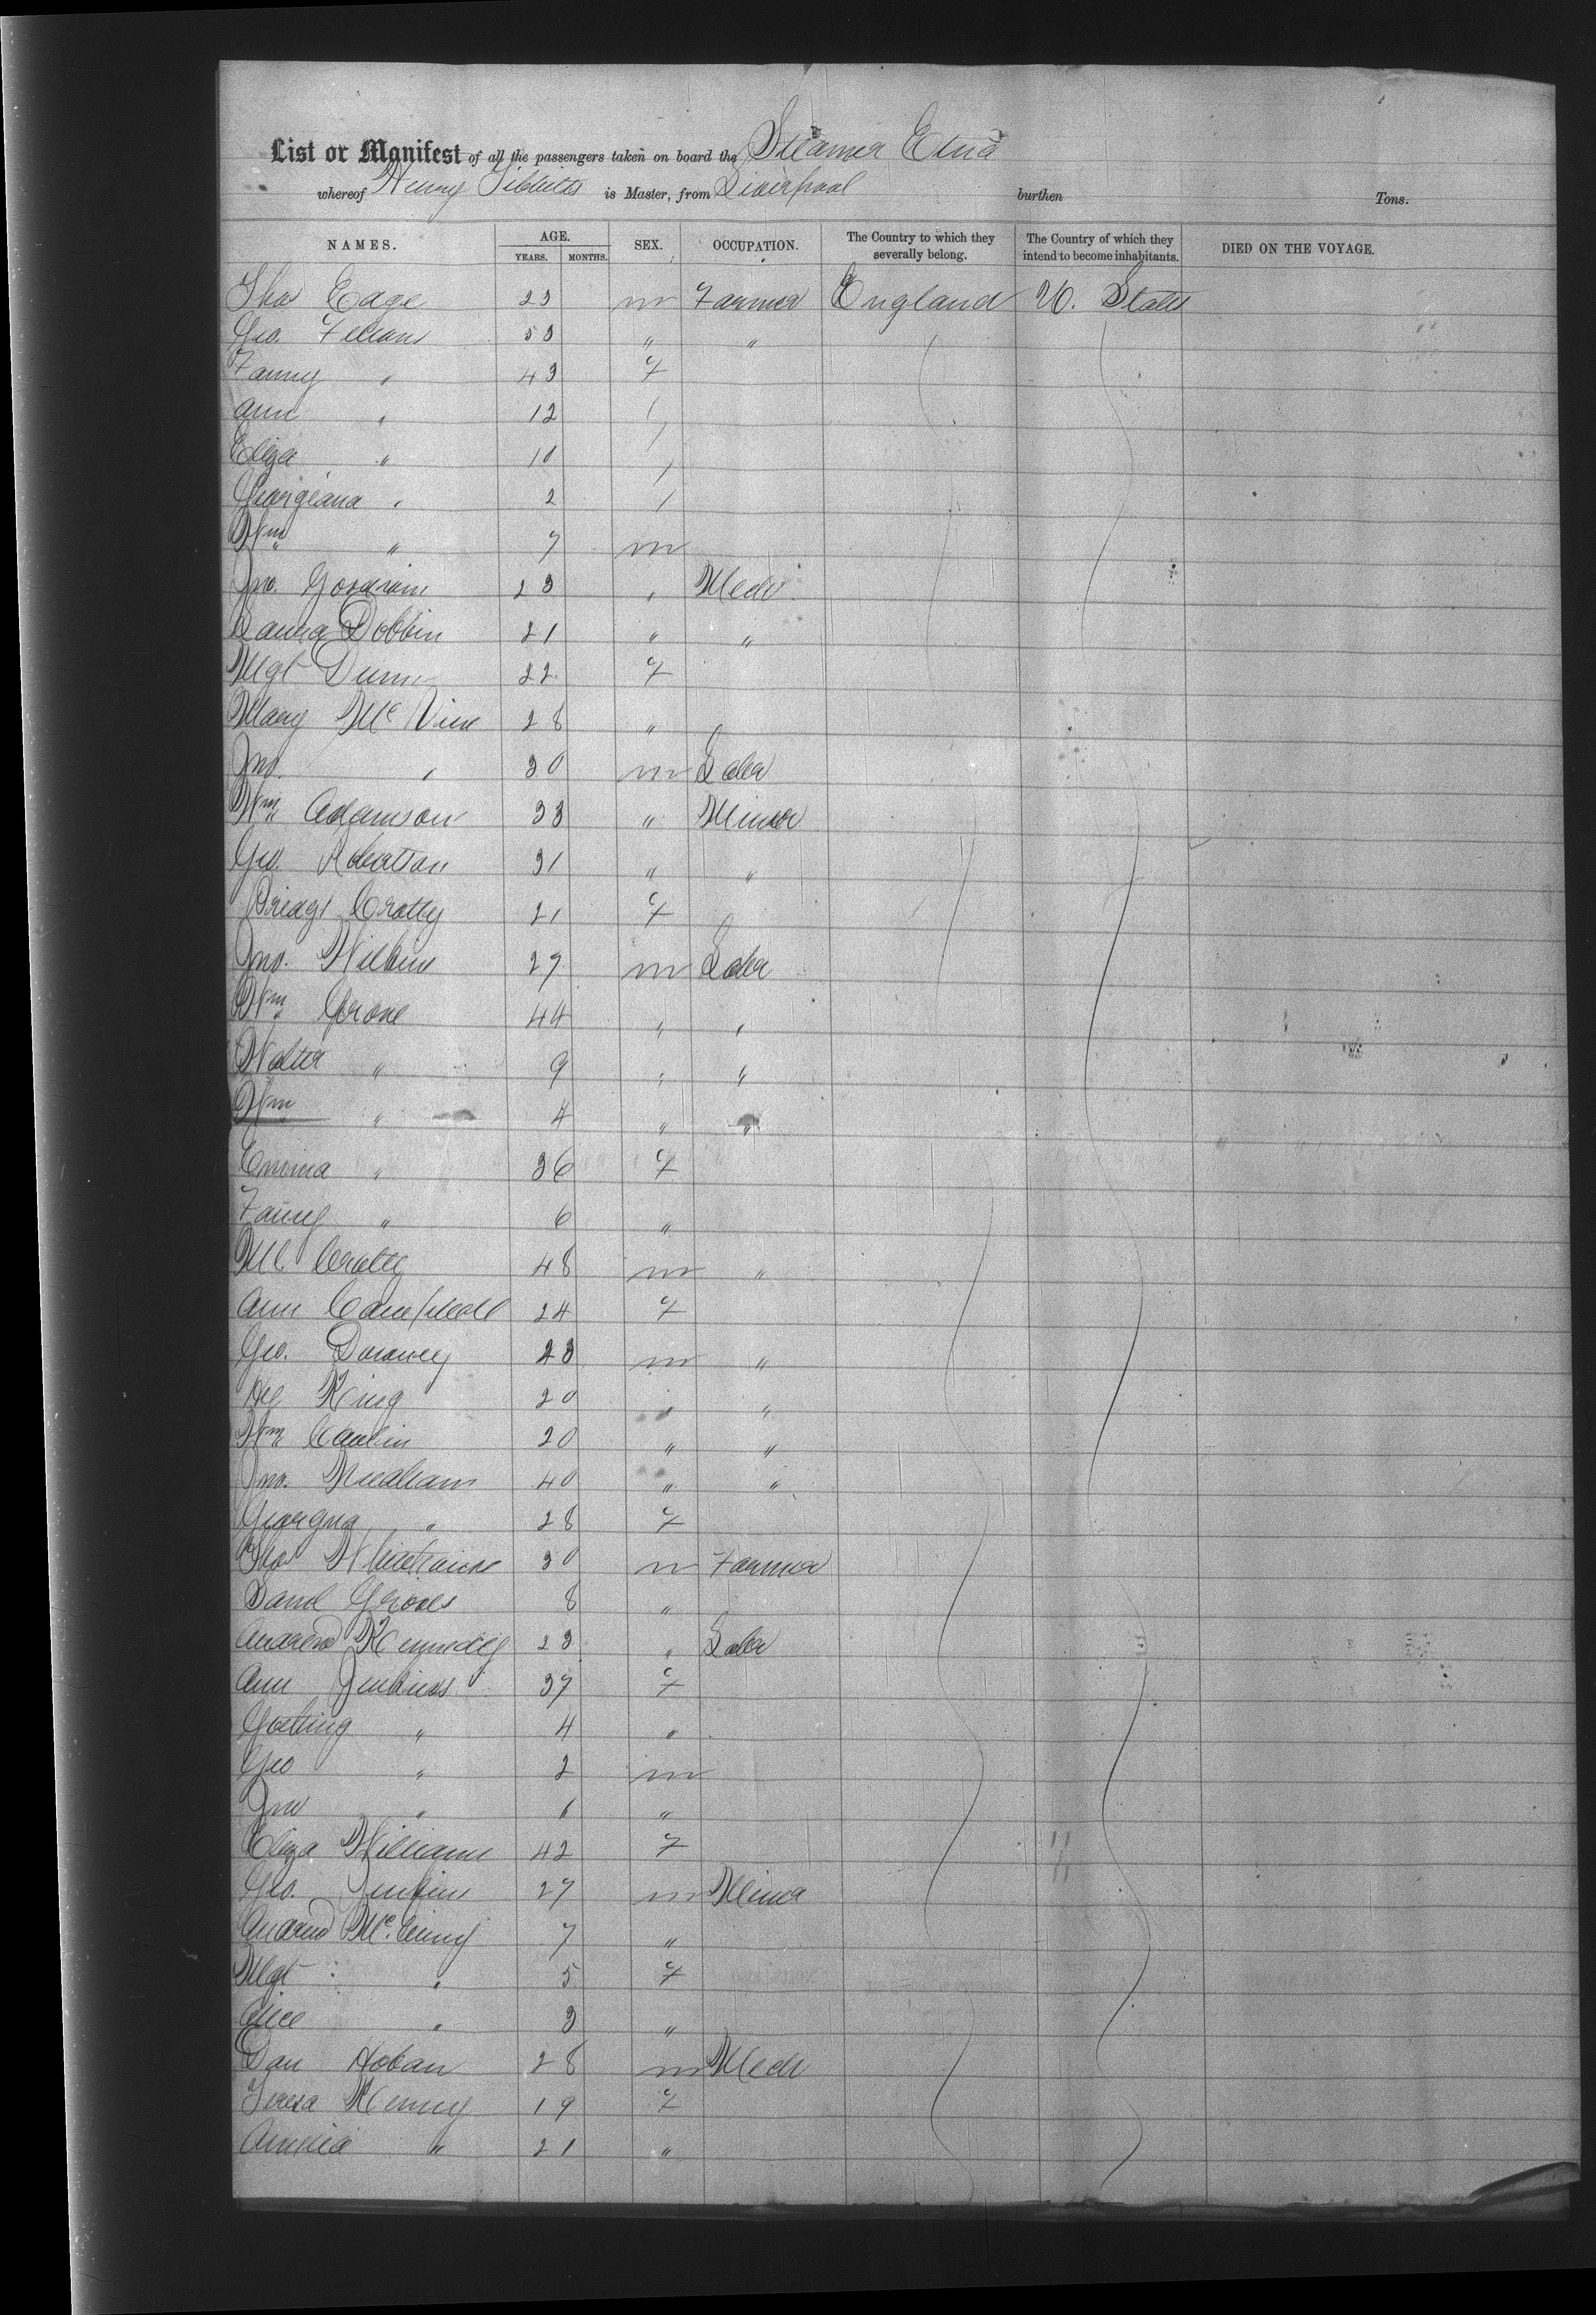 List or Manifest of all the passengers taken on board the Steamer Etna
whereof Henry Tibbitts is Master, from Liverpool burthen Tons.
NAMES. AGE. SEX. OCCUPATION. The Country to which they severally belong. The Country of which they intend to become inhabitants. DIED ON THE VOYAGE.
YEARS. MONTHS.
Thos Edge 23 m Farmer England U. States
Geo. 53 " "
Fanny " 43 f
Ann " 12
Eliza " 10
Georgeana " 2
Wm " 7 m
Jno. Goodwin 23 " Mech
Dobbin 21 " "
Mgt Dunn 22 f
Mary Mc 28 "
Jno. " 30 m Labr
Wm Adamson 33 " Miner
Geo. Robertson 31 " "
Bridgt Crotty 21 f
Jno. Wilkins 27 m Labr
Wm Grove 44 " "
Walter " 9 " "
Wm " 4 " "
Emma " 36 f
Fanny " 6 "
Ml Crotty 48 m "
Ann Campbell 24 f
Geo. Downey 23 m "
Hy King 20 " "
Wm 20 " "
Jno. Needham 40 " "
Georgna " 28 f
Thos 30 m Farmer
Saml Groves 8 "
Andrew Kennedy 23 " Labr
Ann Jenkins 37 f
" 4 "
Geo " 2 m
Jno " 1 "
Eliza Williams 42 f
Geo. Jenkins 27 m Miner
Andrew Mc. 7 "
Mgt " 5 f
Alice " 3 "
Dan Hoban 28 m Mech
Teresa Kenny 19 f
" 21 "